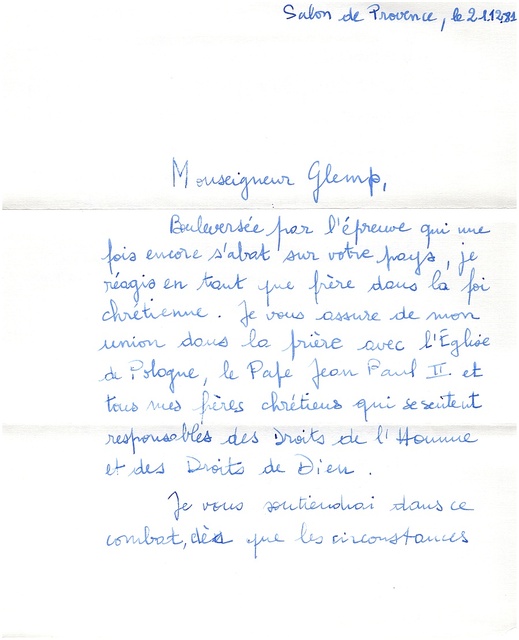 Salon de Provence, le 21.12.81
Monseigneur Glemp,
Bouleversée par l'épreuve qui une
fois encore s'abat sur votre pays, je
réagis en tant que frère dans la foi
chrétienne. Je vous assure de mon
union dans la prière avec l'Église
de Pologne, le Pape Jean Paul II. et
tous mes frères chrétiens qui se sentent
responsables des Droits de l'Homme
et des Droits de Dieu.
Je vous soutiendrai dans ce
combat, dès que les circonstances